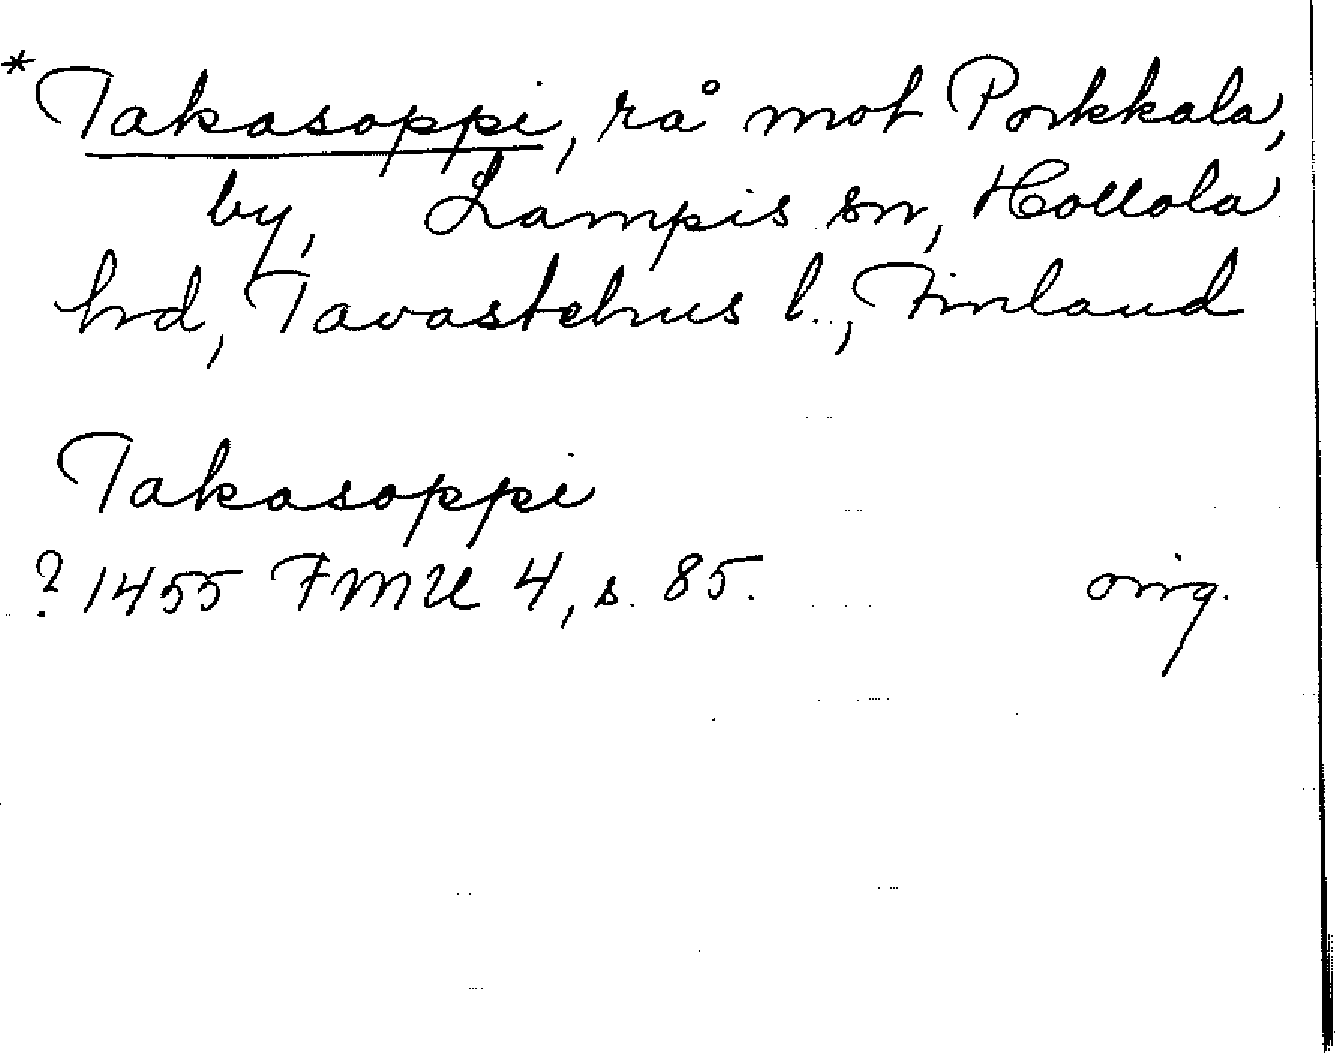 *Takasoppi, rå mot Porkkala,
by, Lampis sn, Hollola
hd, Tavastehus l., Finland
Takasoppi
? 1455 FMU 4, s. 85. orig.